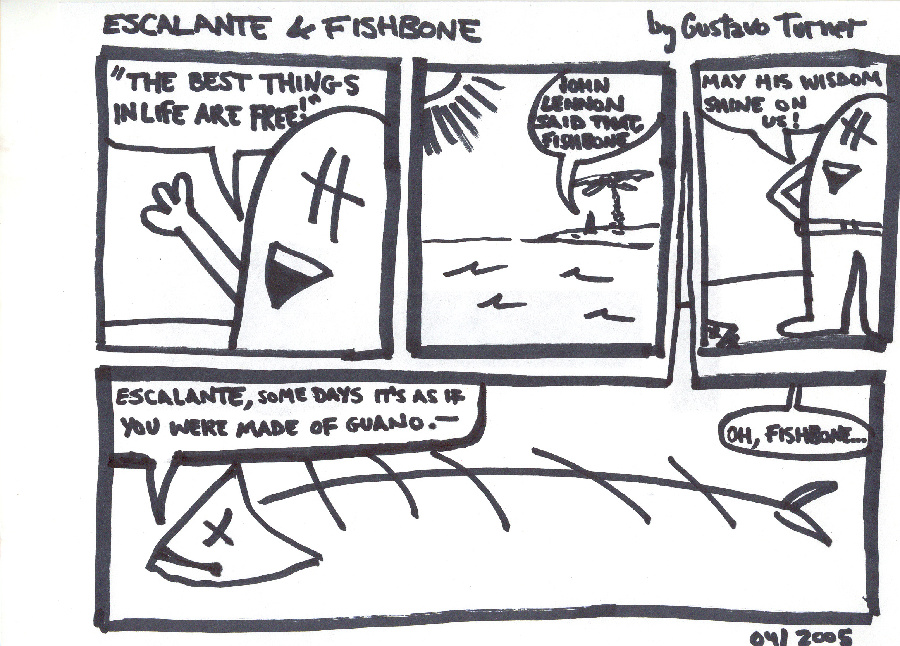 ESCALANTE & FISHBONE
by Gustavo Turner
"THE BEST THINGS
IN LIFE ARE FREE!"
JOHN
LENNON
SAID THAT
FISHBONE
MAY HIS WISDOM
SHINE ON
US!
ESCALANTE, SOME DAYS IT'S AS IF
YOU WERE MADE OF GUANO.—
OH, FISHBONE...
04/2005